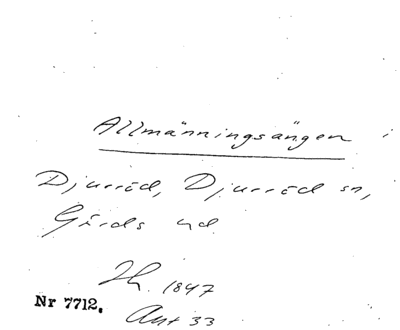 Allmänningsängen i
Djurröd, Djurröd sn,
Gärds hd
Th. 1847
Nr 7712.
Ant 33